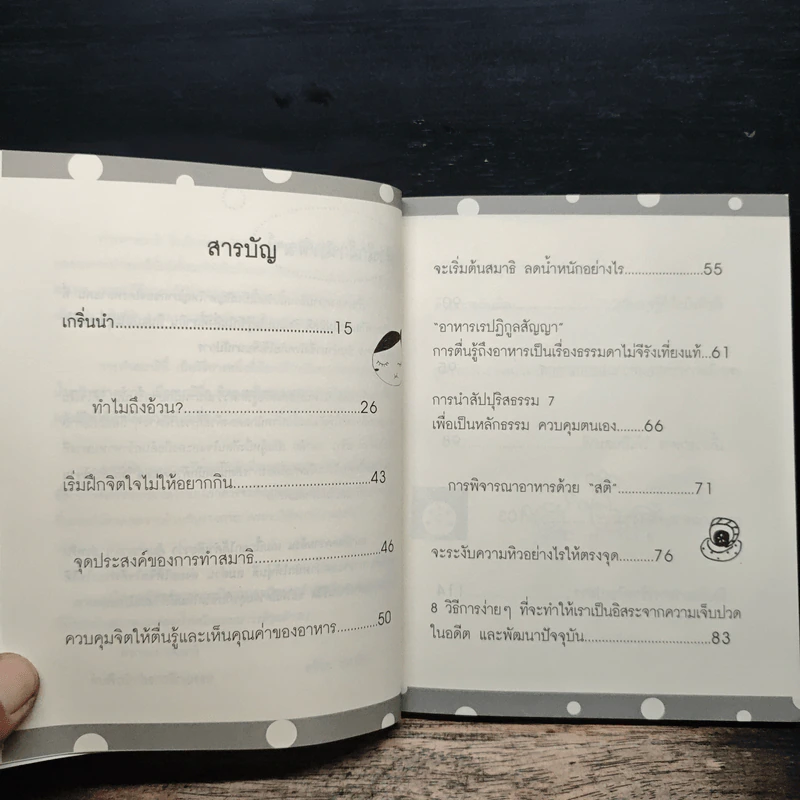 สารบัญ
เกริ่นนำ...............................................15
ทำไมถึงอ้วน?......................................26
เริ่มฝึกจิตใจไม่ให้อยากกิน..............................43
จุดประสงค์ของการทำสมาธิ...........................46
ควบคุมจิตให้ตื่นรู้และเห็นคุณค่าของอาหาร.........50
จะเริ่มต้นสมาธิ ลดน้ำหนักอย่างไร.......................55
"อาหารเรปฏิกูลสัญญา"
การตื่นรู้ถึงอาหารเป็นเรื่องธรรมดาไม่จีรังเที่ยงแท้...61
การนำสัปปุริสธรรม 7
เพื่อเป็นหลักธรรม ควบคุมตนเอง........66
การพิจารณาอาหารด้วย "สติ"......................71
จะระงับความหิวอย่างไรให้ตรงจุด..........76
8 วิธีการง่ายๆ ที่จะทำให้เราเป็นอิสระจากความเจ็บปวด
ในอดีต และพัฒนาปัจจุบัน...........................83